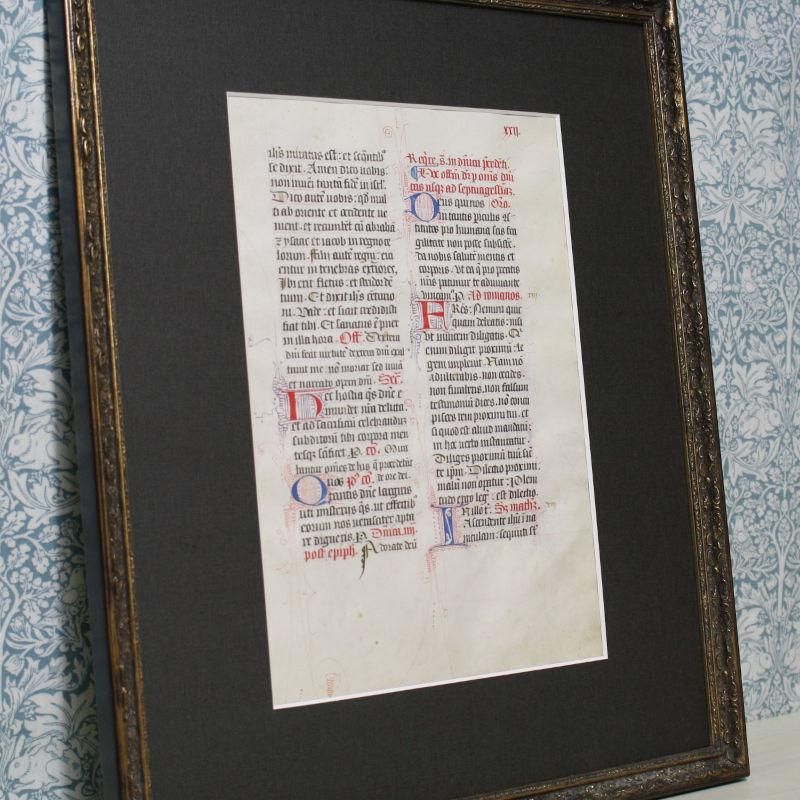 xxii.
ih̄s miratus est: et seq̄ntib᷒
se dixit. Amen dico vobis.
non inveni tantā fidē in isrl.
Dico autē vobis: qd̓ mul
ti ab oriente et occidente ve
nient. et recumbēt cū abrahā
ysaac et iacob in regno ce
lorum. filii autē regni: eici
entur in tenebras exteriores.
Ibi erit fletus: et stridor dē
tium. Et dixit ih̄s centurio
ni. Vade: et sicut credidisti
fiat tibi. Et sanatus ē puer
in illa hora. Off. Dextera
dn̄i fecit virtutē dextera dn̄i exal
tavit me. nō moriar sed vivā
et narrabo opera dn̄i. Scr̄.
Hec hostia qs̄ dn̄e e
mundet nr̄a delicta.
et ad sacrificiū celebrandum
subditorū tibi corpora men
tesqz sc̄ificet. P. cō. Mira
bantur om̄es de his q̄ procedebāt
Quos P᷒ cō. de ore dei.
tantis dn̄e largiris
uti misteriis qs̄. ut effectib᷒
eorum nos veraciter apta
re digneris. P. Dn̄ica iiii.
post epiph. Adorate deū
dn̄i
ctis usqz ad septuagesimā.
Deus qui nos Oro.
in tantis periculis 9sti
titutos pro humana scis fra
gilitate non posse subsiste᷒
da nobis salutē mentis et
corporis. ut ea q̄ pro peccatis
nr̄is patimur te adiuvante
vincam᷒. P. Ad romanos.
Fr̄es: Nemini quic
quam debeatis: nisi
ut invicem diligatis. Qui
enim diligit proximū: le
gem implevit. Nam nō
adulterabis. non occides.
non furaberis. non falsum
testimoniū dices. nō concu
pisces rem proximi tui. et
si quod est aliud mandatū:
in hoc verbo instauratur.
Diliges proximū tuū sicut
te ip̄m. Dilectio proximi
malū non operatur. Pleni
tudo ergo leg᷒: est dilectio.
In illo t̄. Sz math̄.
Ascendente ih̄u ī na
viculam: secuti st̄